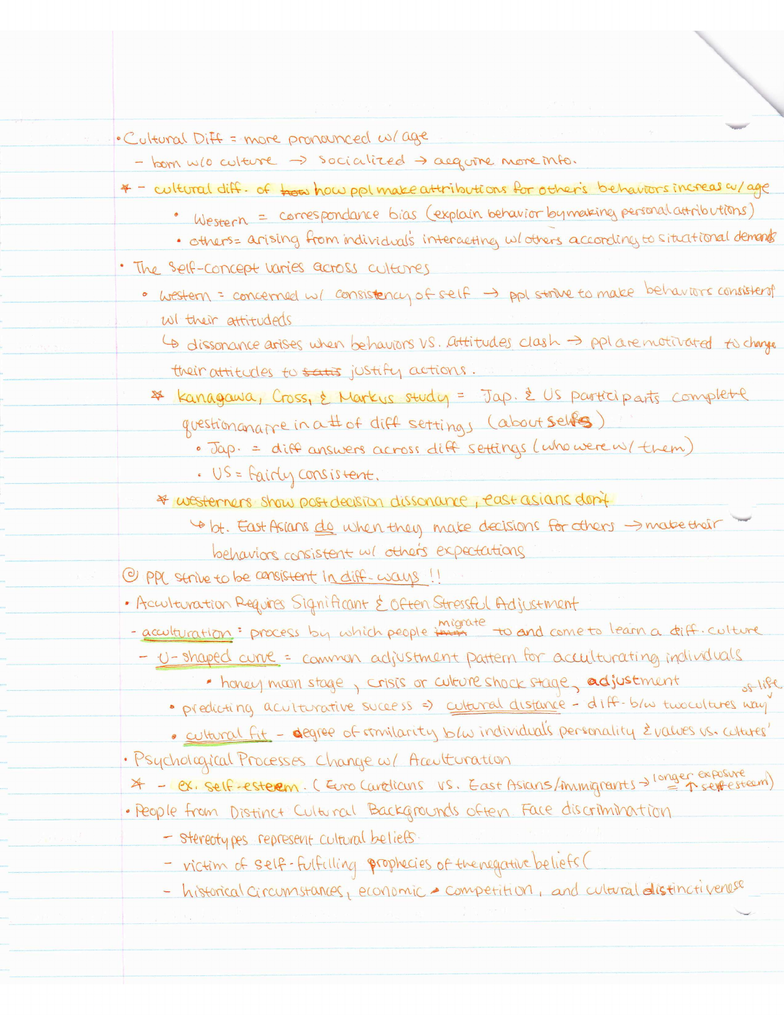 • Cultural Diff = more pronounced w/ age
- born w/o culture → socialized → acquire more info.
* - cultural diff. of how how ppl make attributions for other's behaviors increas w/ age
• Western = correspondance bias (explain behavior by making personal attributions)
• others = arising from individuals interacting w/ others according to situational demands
• The Self-Concept varies across cultures
• western = concerned w/ consistency of self → ppl strive to make behaviors consistent
w/ their attitudeds
↳ dissonance arises when behaviors vs. attitudes clash → ppl are motivated to change
their attitudes to satis justify actions.
* Kanagawa, Cross, & Markus study = Jap. & US participants complete
questionanaire in a # of diff settings (about selfs)
• Jap. = diff answers across diff settings (who were w/ them)
• US = fairly consistent.
* westerners show postdecision dissonance, east asians don't
↳ bt. East Asians do when they make decisions for others → make their
behaviors consistent w/ other's expectations
@ PPL strive to be consistent in diff. ways !!
• Acculturation Requires Significant & Often Stressful Adjustment
- acculturation : process by which people migrate to and come to learn a diff. culture
- U-shaped curve = common adjustment pattern for acculturating individuals
• honey moon stage, crisis or culture shock stage, adjustment
• predicting aculturative success => cultural distance - diff. b/w two cultures way of life
• cultural fit - degree of similarity b/w individual's personality & values vs. cultures'
• Psychological Processes Change w/ Aculturation
* - ex. self-esteem. (Euro Canadians vs. East Asians/immigrants → longer exposure = ↑ self esteem)
• People from Distinct Cultural Backgrounds often Face discrimination
- stereotypes represent cultural beliefs
- victim of self-fulfilling prophecies of the negative beliefs (
- historical circumstances, economic competition, and cultural distinctiveness